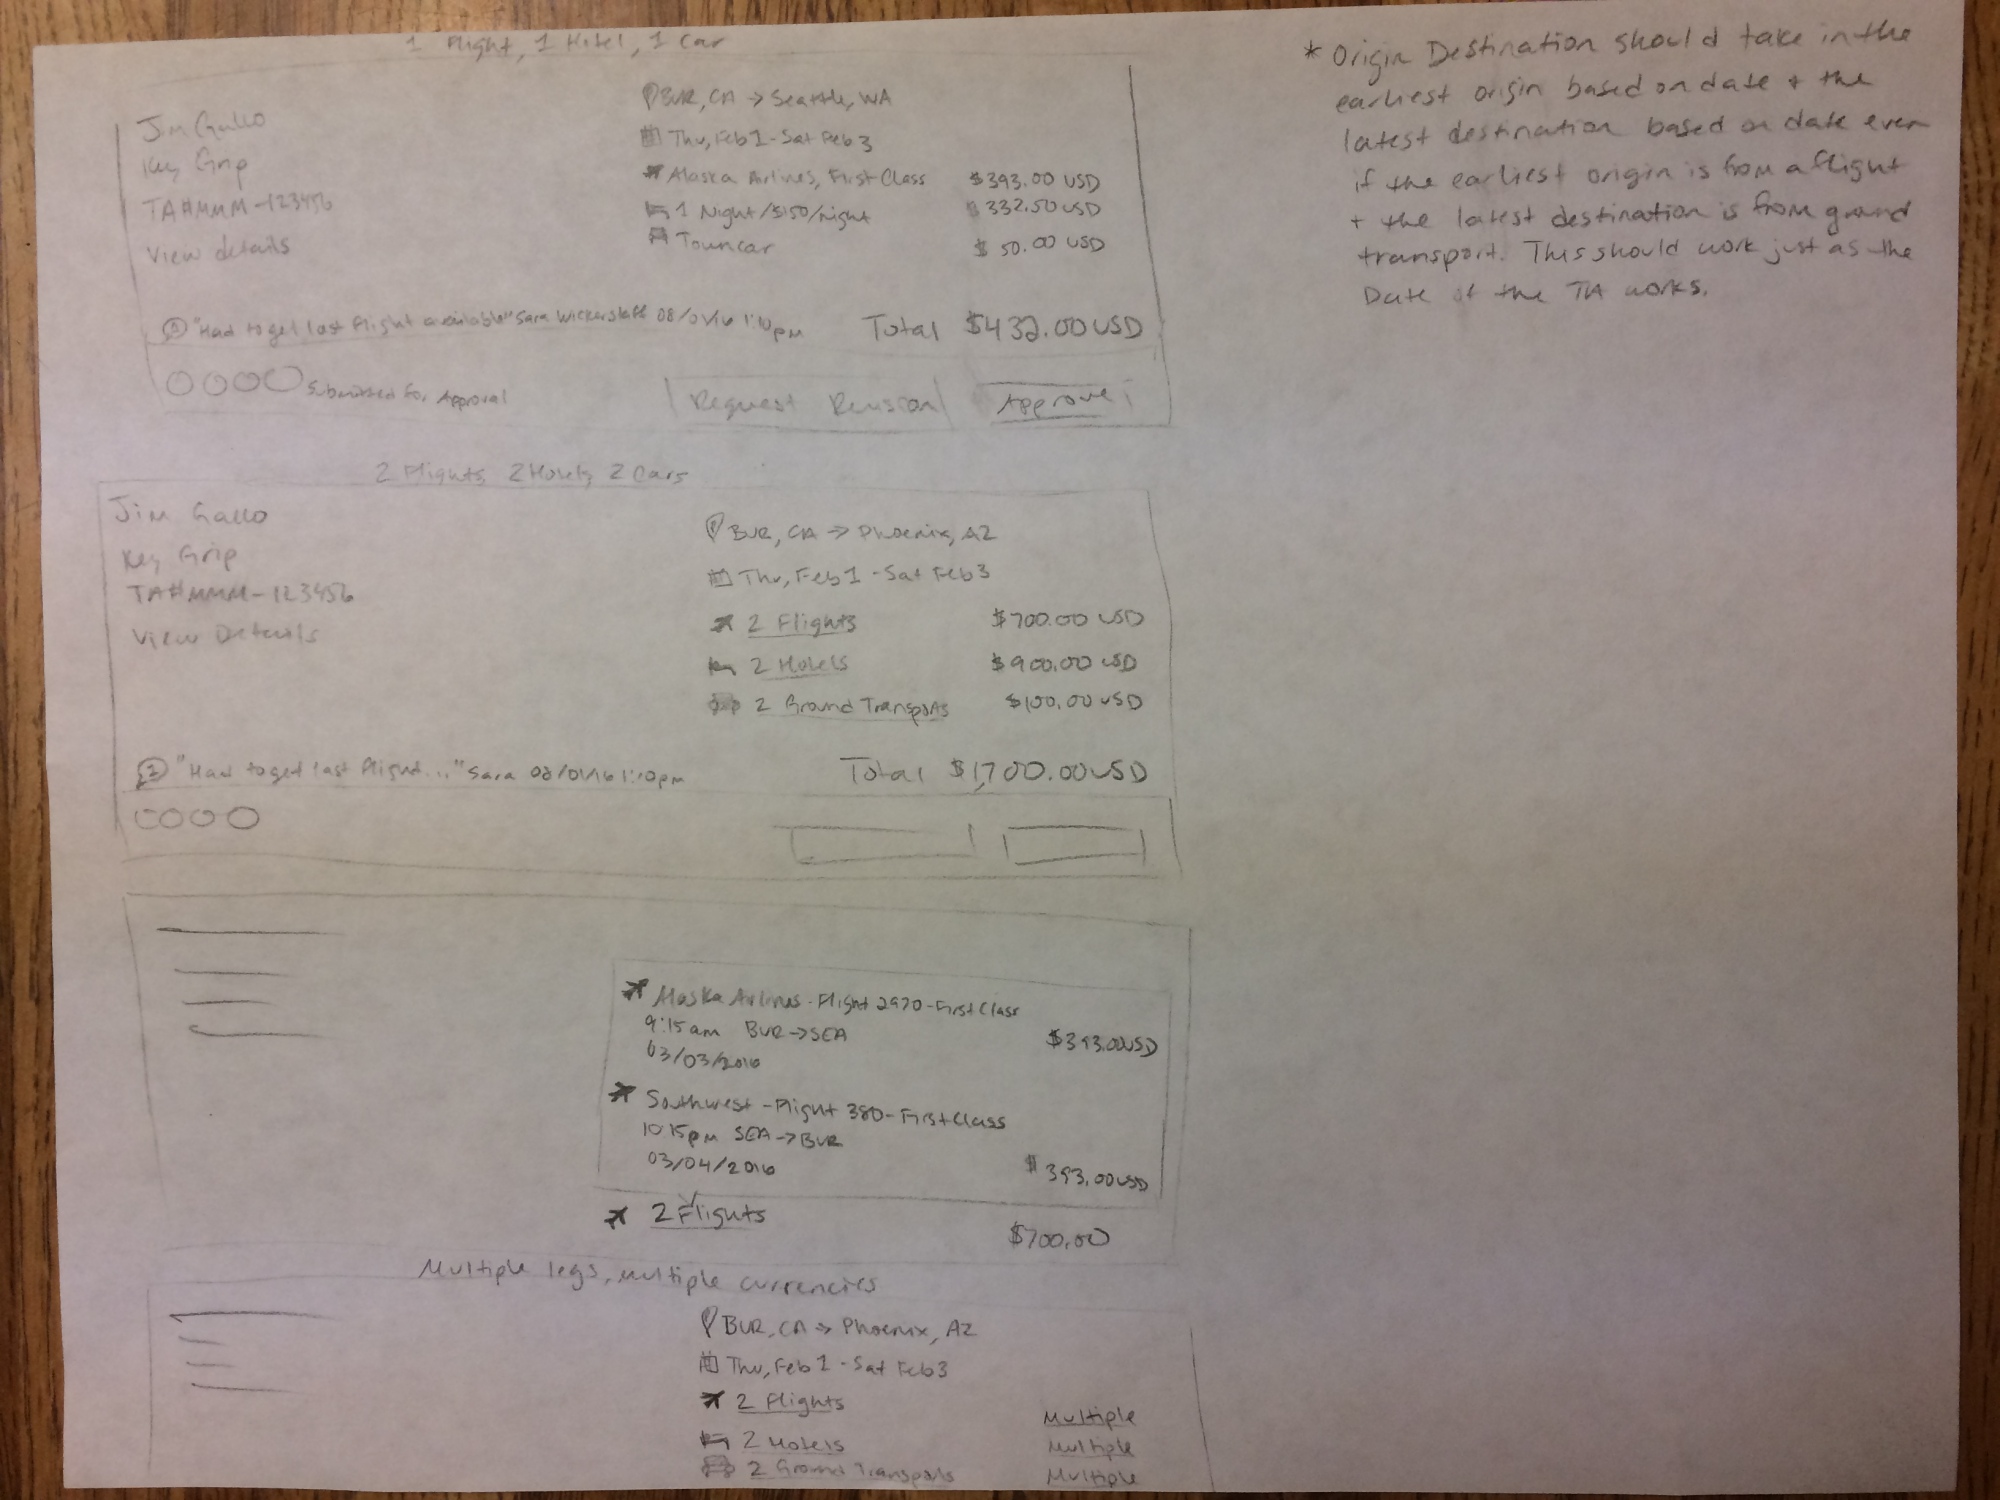 1 Flight, 1 Hotel, 1 Car
Jim Gallo
Key Grip
TA#MMM-123456
View details
BUR, CA → Seattle, WA
Thu, Feb 1 - Sat Feb 3
Alaska Airlines, First Class $393.00 USD
1 Night/$150/night $332.50 USD
Towncar $50.00 USD
"Had to get last flight available" Sara Wickerstaff 08/01/16 1:10pm
Total $432.00 USD
Submitted for Approval
Request Revision
Approve
2 Flights, 2 Hotels, 2 Cars
Jim Gallo
Key Grip
TA#MMM-123456
View Details
BUR, CA → Phoenix, AZ
Thu, Feb 1 - Sat Feb 3
2 Flights $700.00 USD
2 Hotels $900.00 USD
2 Ground Transports $100.00 USD
"Had to get last flight..." Sara 08/01/16 1:10pm
Total $1,700.00 USD
Alaska Airlines - Flight 2970 - First Class
9:15am BUR → SEA $393.00 USD
03/03/2016
Southwest - Flight 380 - First Class
10:15pm SEA → BUR
03/04/2016 $393.00 USD
2 Flights $700.00
Multiple legs, multiple currencies
BUR, CA → Phoenix, AZ
Thu, Feb 1 - Sat Feb 3
2 Flights Multiple
2 Hotels Multiple
2 Ground Transports Multiple
* Origin Destination should take in the
earliest origin based on date + the
latest destination based on date even
if the earliest origin is from a flight
+ the latest destination is from ground
transport. This should work just as the
Date of the TA works.